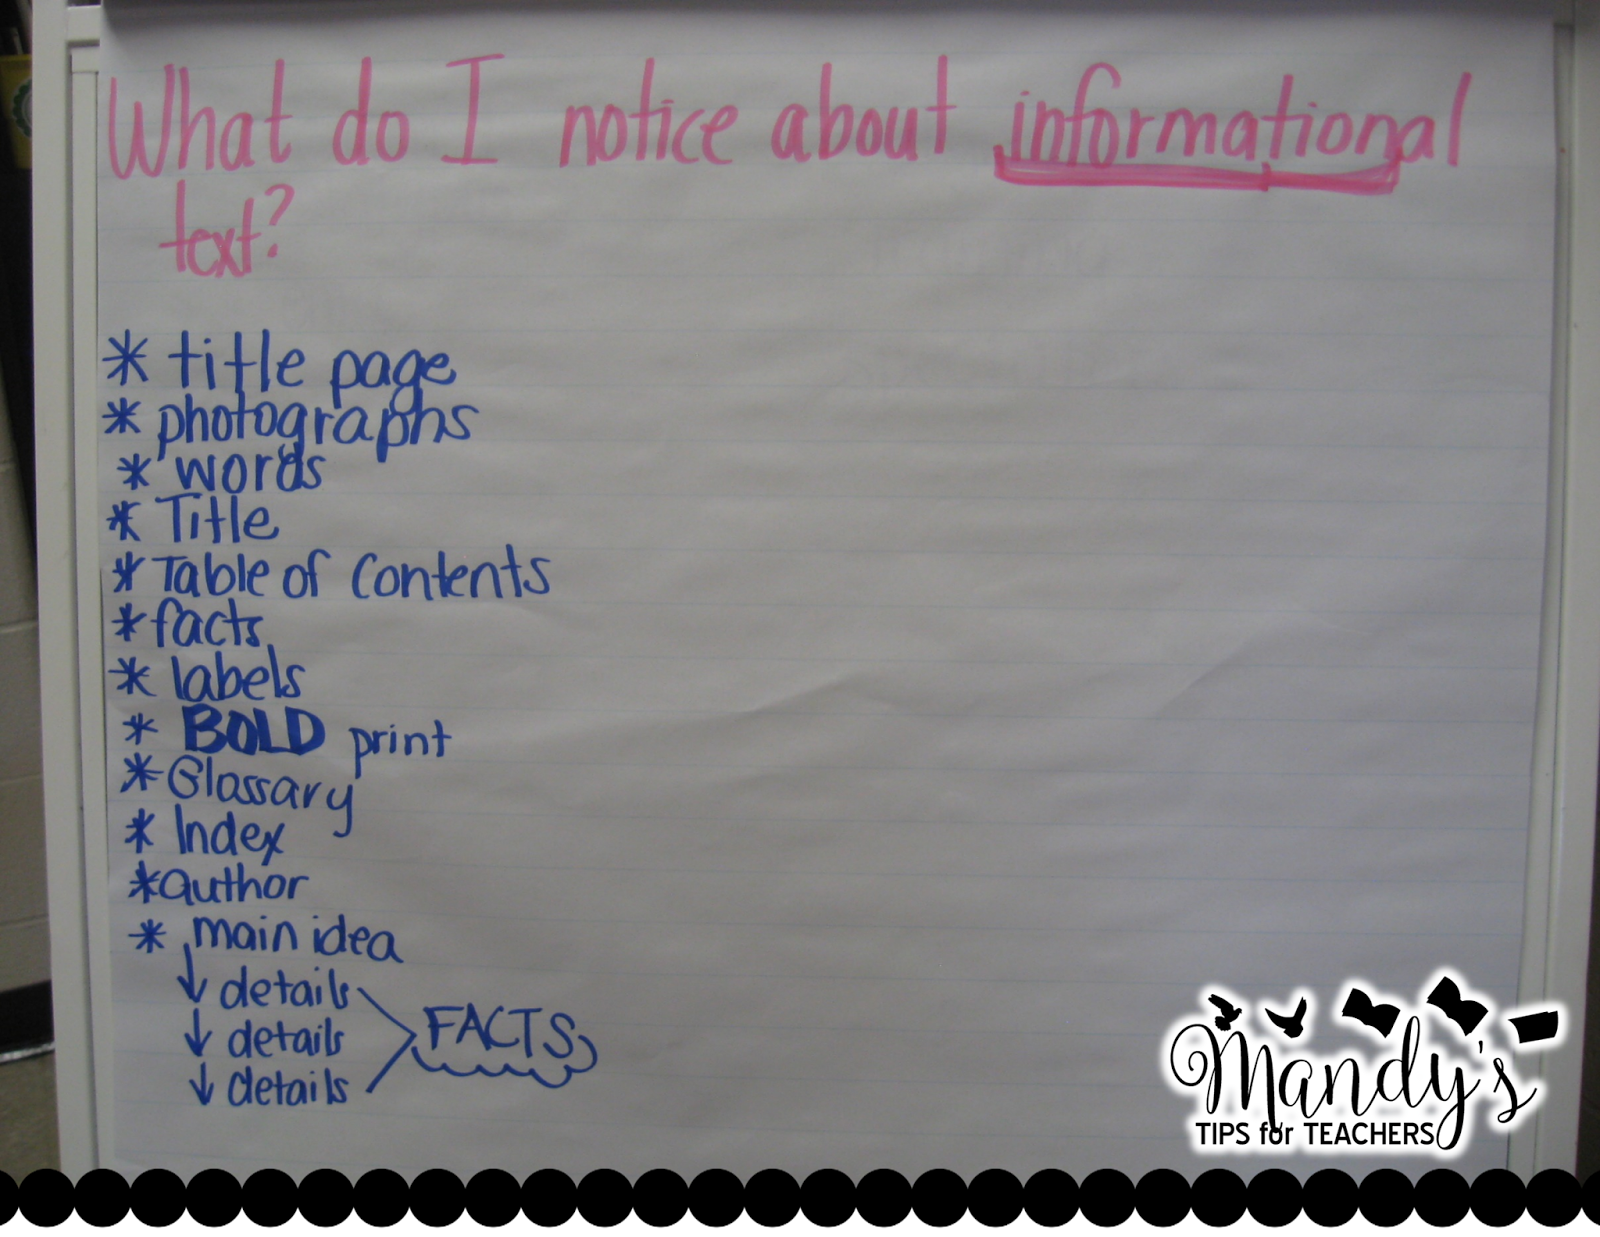 What do I notice about informational
text?
* title page
* photographs
* words
* Title
* Table of Contents
* facts
* labels
* BOLD print
* Glossary
* Index
* author
* main idea
↓ details
↓ details
↓ details
FACTS
Mandy's
TIPS for TEACHERS